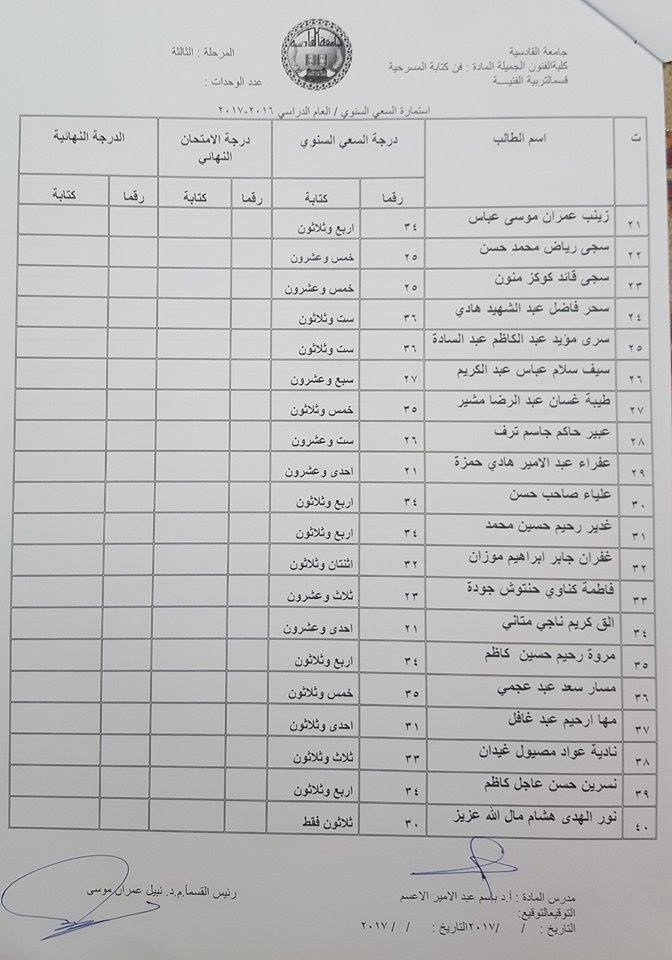 جامعة القادسية
كليةالفنون الجميلة المادة : فن كتابة المسرحية
قسمالتربية الفنيـــة
المرحلة : الثالثة
عدد الوحدات :
جامعة القادسية
استمارة السعي السنوي / العام الدراسي ٢٠١٦-٢٠١٧
ت اسم الطالب درجة السعي السنوي درجة الامتحان النهائي الدرجة النهائية
رقما كتابة رقما كتابة رقما كتابة
٢١ زينب عمران موسى عباس ٣٤ اربع وثلاثون
٢٢ سجى رياض محمد حسن ٢٥ خمس وعشرون
٢٣ سجى قائد كوكز منون ٢٥ خمس وعشرون
٢٤ سحر فاضل عبد الشهيد هادي ٣٦ ست وثلاثون
٢٥ سرى مؤيد عبد الكاظم عبد السادة ٣٦ ست وثلاثون
٢٦ سيف سلام عباس عبد الكريم ٢٧ سبع وعشرون
٢٧ طيبة غسان عبد الرضا مشير ٣٥ خمس وثلاثون
٢٨ عبير حاكم جاسم ترف ٢٦ ست وعشرون
٢٩ عفراء عبد الامير هادي حمزة ٢١ احدى وعشرون
٣٠ علياء صاحب حسن ٣٤ اربع وثلاثون
٣١ غدير رحيم حسين محمد ٣٤ اربع وثلاثون
٣٢ غفران جابر ابراهيم موزان ٣٢ اثنتان وثلاثون
٣٣ فاطمة كناوي حنتوش جودة ٢٣ ثلاث وعشرون
٣٤ الق كريم ناجي متاني ٢١ احدى وعشرون
٣٥ مروة رحيم حسين كاظم ٣٤ اربع وثلاثون
٣٦ مسار سعد عبد عجمي ٣٥ خمس وثلاثون
٣٧ مها ارحيم عبد غافل ٣١ احدى وثلاثون
٣٨ نادية عواد مصيول غيدان ٣٣ ثلاث وثلاثون
٣٩ نسرين حسن عاجل كاظم ٣٤ اربع وثلاثون
٤٠ نور الهدى هشام مال الله عزيز ٣٠ ثلاثون فقط
مدرس المادة : أ.د باسم عبد الامير الاعسم
التوقيعالتوقيع:
التاريخ : / /٢٠١٧التاريخ : / / ٢٠١٧
رئيس القسمأ.م.د. نبيل عمران موسى